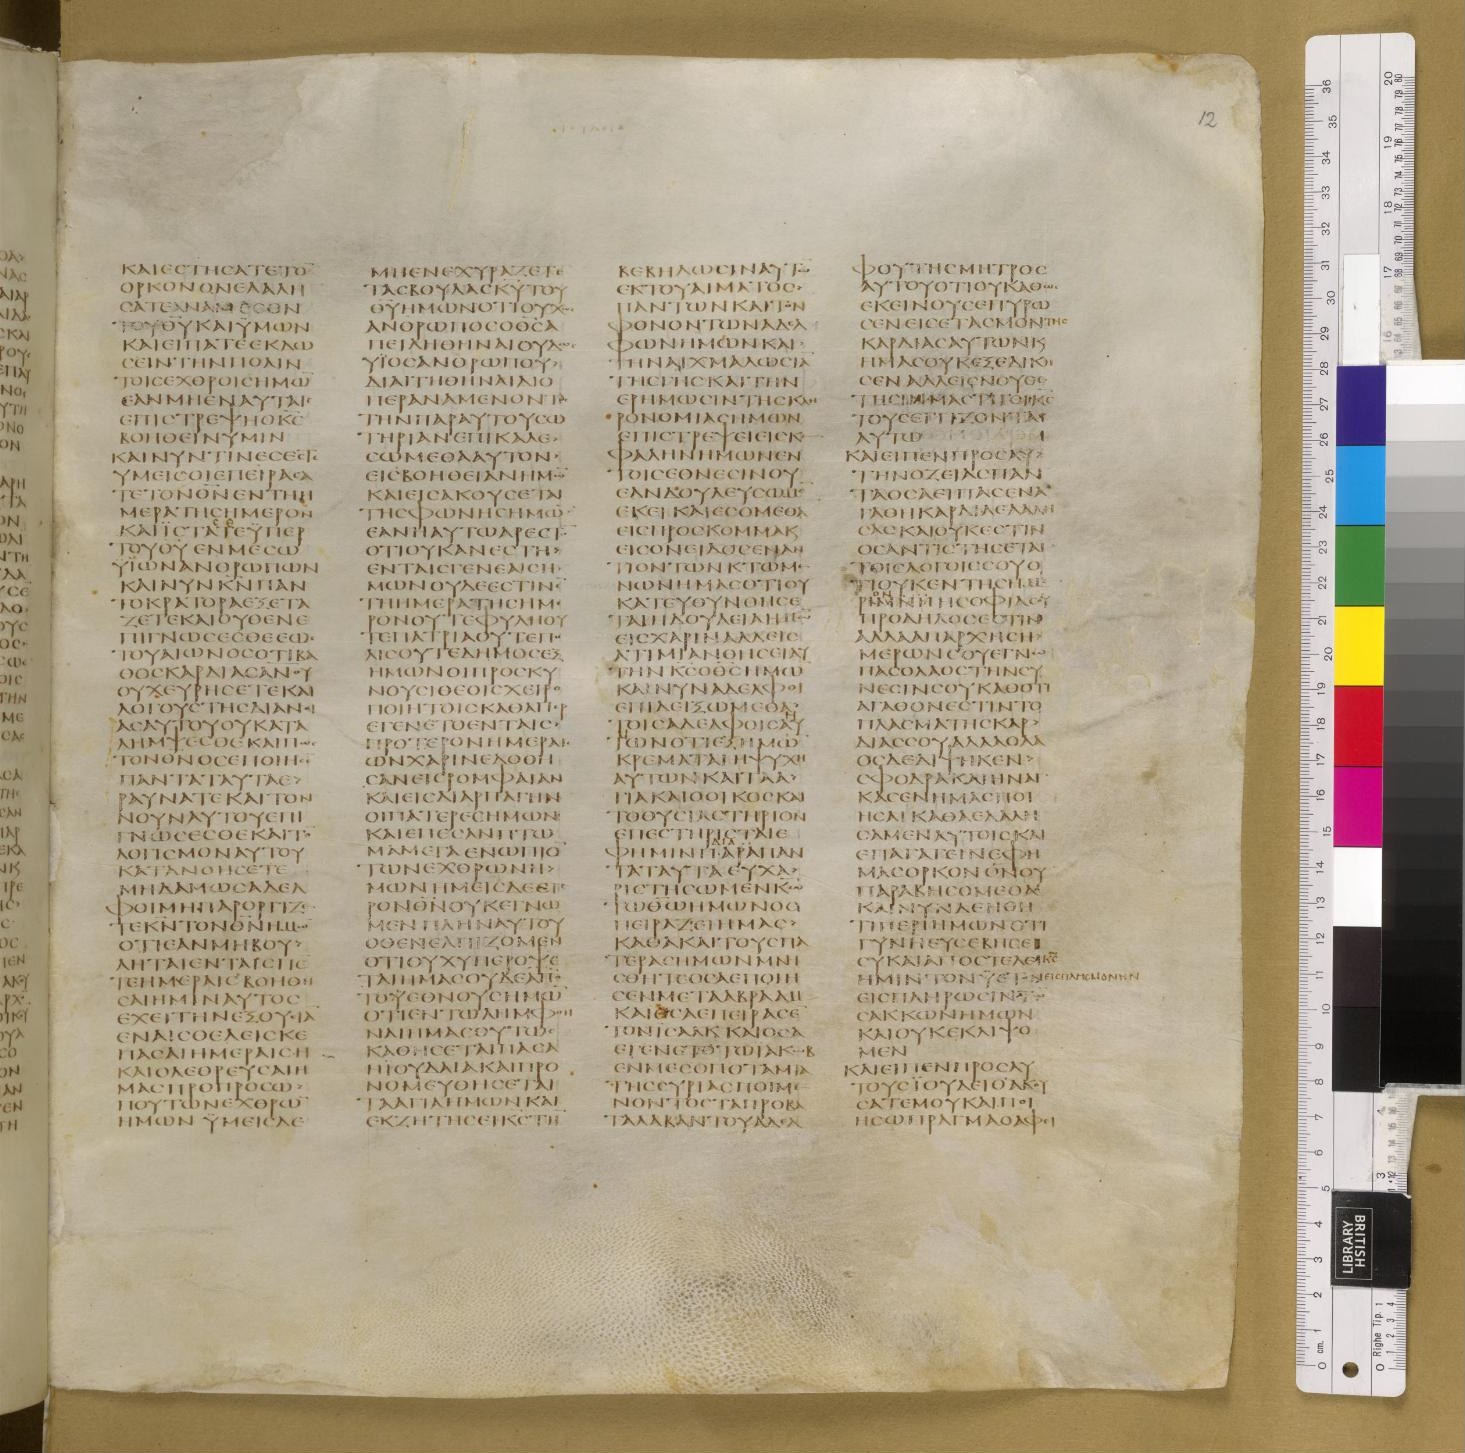 ΚΑΙΕϹΤΗϹΑΤΕΤΟ̅
ΟΡΚΟΝΟΝΕΛΑΛΗ
ϹΑΤΕΑΝΑΜΕϹΟΝ
ΤΟΥΘΥΚΑΙΫΜΩΝ
ΚΑΙΕΙΠΑΤΕΕΚΔΩ
ϹΕΙΝΤΗΝΠΟΛΙΝ
ΤΟΙϹΕΧΘΡΟΙϹΗΜΩ̅
ΕΑΝΜΗΕΝΑΥΤΑΙϹ
ΕΠΙϹΤΡΕΨΗΟΚϹ
ΒΟΗΘΕΙΝΥΜΙΝ
ΚΑΙΝΥΝΤΙΝΕϹΕϹΤΕ
ΥΜΕΙϹΟΙΕΠΕΙΡΑϹΑ
ΤΕΤΟΝΘΝΕΝΤΗΗ
ΜΕΡΑΤΗϹΗΜΕΡΟΝ
ΚΑΙΪϹΤΑΤΕΫΠΕΡ
ΤΟΥΘΥΕΝΜΕϹΩ
ΥΪΩΝΑΝΘΡΩΠΩΝ
ΚΑΙΝΥΝΚΝΠΑΝ
ΤΟΚΡΑΤΟΡΑΕΞΕΤΑ
ΖΕΤΕΚΑΙΟΥΘΕΝΕ
ΠΙΓΝΩϹΕϹΘΕΕΩϹ
ΤΟΥΑΙΩΝΟϹΟΤΙΒΑ
ΘΟϹΚΑΡΔΙΑϹΑΝΟΥ
ΟΥΧΕΥΡΗϹΕΤΕΚΑΙ
ΛΟΓΟΥϹΤΗϹΔΙΑΝΟΙ
ΑϹΑΥΤΟΥΟΥΚΑΤΑ
ΛΗΜΨΕϹΘΕΚΑΙΠΩϹ
ΤΟΝΘΝΟϹΕΠΟΙΗϹΕ
ΠΑΝΤΑΤΑΥΤΑΕ>
ΡΑΥΝΑΤΕΚΑΙΤΟΝ
ΝΟΥΝΑΥΤΟΥΕΠΙ
ΓΝΩϹΕϹΘΕΚΑΙΤΟ̅
ΛΟΓΙϹΜΟΝΑΥΤΟΥ
ΚΑΤΑΝΟΗϹΕΤΕ
ΜΗΔΑΜΩϹΑΔΕΛ
ΦΟΙΜΗΠΑΡΟΡΓΙΖΕ
ΤΕΚΝΤΟΝΘΝΗΜΩ̅
ΟΤΙΕΑΝΜΗΒΟΥ>
ΛΗΤΑΙΕΝΤΑΙϹΠΕ̅
ΤΕΗΜΕΡΑΙϹΒΟΗΘΗ
ϹΑΙΗΜΙΝΑΥΤΟϹ
ΕΧΕΙΤΗΝΕΞΟΥϹΙΑ̅
ΕΝΑΙϹΘΕΛΕΙϹΚΕ
ΠΑϹΑΙΗΜΕΡΑΙϹΗ
ΚΑΙΟΛΕΘΡΕΥϹΑΙΗ
ΜΑϹΠΡΟΠΡΟϹΩ>
ΠΟΥΤΩΝΕΧΘΡΩ̅
ΗΜΩΝΫΜΕΙϹΔΕ
ΜΗΕΝΕΧΥΡΑΖΕΤΕ
ΤΑϹΒΟΥΛΑϹΚΥΤΟΥ
ΘΥΗΜΩΝΟΤΙΟΥΧΩϹ
ΑΝΘΡΩΠΟϹΟΘϹΑ
ΠΕΙΛΗΘΗΝΑΙΟΥΔΩϹ
ΥΪΟϹΑΝΘΡΩΠΟΥ>
ΔΙΑΙΤΗΘΗΝΑΙΔΙΟ
ΠΕΡΑΝΑΜΕΝΟΝΤΕ
ΤΗΝΠΑΡΑΥΤΟΥϹΩ
ΤΗΡΙΑΝΕΠΙΚΑΛΕ>
ϹΩΜΕΘΑΑΥΤΟΝ>
ΕΙϹΒΟΗΘΕΙΑΝΗΜΩ̅
ΚΑΙΕΙϹΑΚΟΥϹΕΤΑΙ
ΤΗϹΦΩΝΗϹΗΜΩ̅
ΕΑΝΗΑΥΤΩΑΡΕϹΤΟ̅
ΟΤΙΟΥΚΑΝΕϹΤΗ>
ΕΝΤΑΙϹΓΕΝΕΑΙϹΗ
ΜΩΝΟΥΔΕΕϹΤΙΝ
ΤΗΗΜΕΡΑΤΗϹΗΜΕ
ΡΟΝΟΥΤΕΦΥΛΗΟΥ
ΤΕΠΑΤΡΙΑΟΥΤΕΠΟ
ΛΙϹΟΥΤΕΔΗΜΟϹΕΞ
ΗΜΩΝΟΙΠΡΟϹΚΥ
ΝΟΥϹΙΘΕΟΙϹΧΕΙΡΟ
ΠΟΙΗΤΟΙϹΚΑΘΑΠΕΡ
ΕΓΕΝΕΤΟΕΝΤΑΙϹ>
ΠΡΟΤΕΡΟΝΗΜΕΡΑΙϹ
ΩΝΧΑΡΙΝΕΔΟΘΗ
ϹΑΝΕΙϹΡΟΜΦΑΙΑΝ
ΚΑΙΕΙϹΔΙΑΡΠΑΓΗΝ
ΟΙΠΑΤΕΡΕϹΗΜΩΝ
ΚΑΙΕΠΕϹΑΝΠΤΩ
ΜΑΜΕΓΑΕΝΩΠΙΟ̅
ΤΩΝΕΧΘΡΩΝΗ>
ΜΩΝΗΜΕΙϹΔΕΕΤΕ
ΡΟΝΘΝΟΥΚΕΓΝΩ
ΜΕΝΠΛΗΝΑΥΤΟΥ
ΟΘΕΝΕΛΠΙΖΟΜΕΝ
ΟΤΙΟΥΧΥΠΕΡΟΨΕ
ΤΑΙΗΜΑϹΟΥΔΕΑΠΟ
ΤΟΥΕΘΝΟΥϹΗΜΩ̅
ΟΤΙΕΝΤΩΛΗΜΦΘΗ
ΝΑΙΗΜΑϹΟΥΤΩϹ
ΚΑΘΗϹΕΤΑΙΠΑϹΑ
ΗΙΟΥΔΑΙΑΚΑΙΠΡΟ
ΝΟΜΕΥΘΗϹΕΤΑΙ
ΤΑΑΓΙΑΗΜΩΝΚΑΙ
ΕΚΖΗΤΗϹΕΙΚϹΤΗ
ΒΕΒΗΛΩϹΙΝΑΥΤΩ̅
ΕΚΤΟΥΑΙΜΑΤΟϹ>
ΠΑΝΤΩΝΚΑΙΤΟΝ
ΦΟΝΟΝΤΩΝΑΔΕΛ
ΦΩΝΗΜΩΝΚΑΙ>
ΤΗΝΑΙΧΜΑΛΩϹΙΑ̅
ΤΗϹΓΗϹΚΑΙΤΗΝ
ΕΡΗΜΩϹΙΝΤΗϹΚΛΗ
ΡΟΝΟΜΙΑϹΗΜΩΝ
ΕΠΙϹΤΡΕΨΕΙΕΙϹΚΕ
ΦΑΛΗΝΗΜΩΝΕΝ
ΤΟΙϹΕΘΝΕϹΙΝΟΥ
ΕΑΝΔΟΥΛΕΥϹΩΜΕ̅
ΕΚΕΙΚΑΙΕϹΟΜΕΘΑ
ΕΙϹΠΡΟϹΚΟΜΜΑΚ
ΕΙϹΟΝΕΙΔΟϹΕΝΑΝ
ΤΙΟΝΤΩΝΚΤΩΜΕ
ΝΩΝΗΜΑϹΟΤΙΟΥ
ΚΑΤΕΥΘΥΝΘΗϹΕ
ΤΑΙΗΔΟΥΛΕΙΑΗΜΩ̅
ΕΙϹΧΑΡΙΝΑΛΛΕΙϹ
ΑΤΙΜΙΑΝΘΗϹΕΙΑΥ
ΤΗΝΚϹΟΘϹΗΜΩ̅
ΚΑΙΝΥΝΑΔΕΛΦΟΙ
ΕΠΙΔΕΙΞΩΜΕΘΑ
ΤΟΙϹΑΔΕΛΦΟΙϹΑΥ
ΤΩΝΟΤΙΕΞΗΜΩ̅
ΚΡΕΜΑΤΑΙΗΨΥΧΗ
ΑΥΤΩΝΚΑΙΤΑΑ>
ΓΙΑΚΑΙΟΟΙΚΟϹΚΑΙ
ΤΟΘΥϹΙΑϹΤΗΡΙΟΝ
ΕΠΕϹΤΗΡΙϹΤΑΙΕ
ΦΗΜΙΝΠΑΡΑΠΑΝ
ΤΑΤΑΥΤΑΕΥΧΑ>
ΡΙϹΤΗϹΩΜΕΝΚΩ
ΤΩΘΩΗΜΩΝΟϹ
ΠΕΙΡΑΖΕΙΗΜΑϹ>
ΚΑΘΑΚΑΙΤΟΥϹΠΑ
ΤΕΡΑϹΗΜΩΝΜΝΗ
ϹΘΗΤΕΟϹΑΕΠΟΙΗ
ϹΕΝΜΕΤΑΑΒΡΑΑΜ
ΚΑΙΟϹΑΕΠΕΙΡΑϹΕ
ΤΟΝΙϹΑΑΚΚΑΙΟϹΑ
ΕΓΕΝΕΤΟΤΩΙΑΚΩΒ
ΕΝΜΕϹΟΠΟΤΑΜΙΑ
ΤΗϹϹΥΡΙΑϹΠΟΙΜΕ
ΝΟΝΤΟϹΤΑΠΡΟΒΑ
ΤΑΛΑΒΑΝΤΟΥΑΔΕΛ
ΦΟΥΤΗϹΜΗΤΡΟϹ
ΑΥΤΟΥΟΤΙΟΥΚΑΘΩϹ
ΕΚΕΙΝΟΥϹΕΠΥΡΩ
ϹΕΝΕΙϹΕΤΑϹΜΟΝΤΗϹ
ΚΑΡΔΙΑϹΑΥΤΩΝΚ
ΗΜΑϹΟΥΚΕΞΕΔΙΚΗ
ϹΕΝΑΛΛΕΙϹΝΟΥΘΕ
ΤΟΥϹΕΓΓΙΖΟΝΤΑϹ
ΑΥΤΩ
ΚΑΙΕΙΠΕΝΠΡΟϹΑΥ>
ΤΗΝΟΖΕΙΑϹΠΑΝ
ΤΑΟϹΑΕΙΠΑϹΕΝΑ
ΓΑΘΗΚΑΡΔΙΑΕΛΑΛΗ
ϹΑϹΚΑΙΟΥΚΕϹΤΙΝ
ΟϹΑΝΤΙϹΤΗϹΕΤΑΙ
ΤΟΙϹΛΟΓΟΙϹϹΟΥΟ
ΤΙΟΥΚΕΝΤΗϹΗΜΕ
ΡΟΝΗϹΟΦΙΑϹΟΥ
ΠΡΟΔΗΛΟϹΕϹΤΙΝ
ΑΛΛΑΠΑΡΧΗϹΗ
ΜΕΡΩΝϹΟΥΕΓΝΩ
ΠΑϹΟΛΑΟϹΤΗΝϹΥ
ΝΕϹΙΝϹΟΥΚΑΘΟΤΙ
ΑΓΑΘΟΝΕϹΤΙΝΤΟ
ΠΛΑϹΜΑΤΗϹΚΑΡ>
ΔΙΑϹϹΟΥΑΛΛΑΟΛΑ
ΟϹΔΕΔΙΨΗΚΕΝ>
ϹΦΟΔΡΑΚΑΙΗΝΑΓ
ΚΑϹΕΝΗΜΑϹΠΟΙ
ΗϹΑΙΚΑΘΑΕΛΑΛΗ
ϹΑΜΕΝΑΥΤΟΙϹΚΑΙ
ΕΠΑΓΑΓΕΙΝΕΦΗ
ΜΑϹΟΡΚΟΝΟΝΟΥ
ΠΑΡΑΒΗϹΟΜΕΘΑ
ΚΑΙΝΥΝΔΕΗΘΗ
ΤΙΠΕΡΙΗΜΩΝΟΤΙ
ΓΥΝΗΕΥϹΕΒΗϹΕΙ
ϹΥΚΑΙΑΠΟϹΤΕΛΕΙΚϹ
ΗΜΙΝΤΟΝΫΕΤΟΝ
ΕΙϹΠΛΗΡΩϹΙΝΤΩ̅
ΛΑΚΚΩΝΗΜΩΝ
ΚΑΙΟΥΚΕΚΛΙΨΟ
ΜΕΝ
ΚΑΙΕΙΠΕΝΠΡΟϹΑΥ
ΤΟΥϹΪΟΥΔΕΙΘΑΚΟΥ
ϹΑΤΕΜΟΥΚΑΙΠΟΙ
ΗϹΩΠΡΑΓΜΑΟΑΦΙ
12
BRITISH
LIBRARY